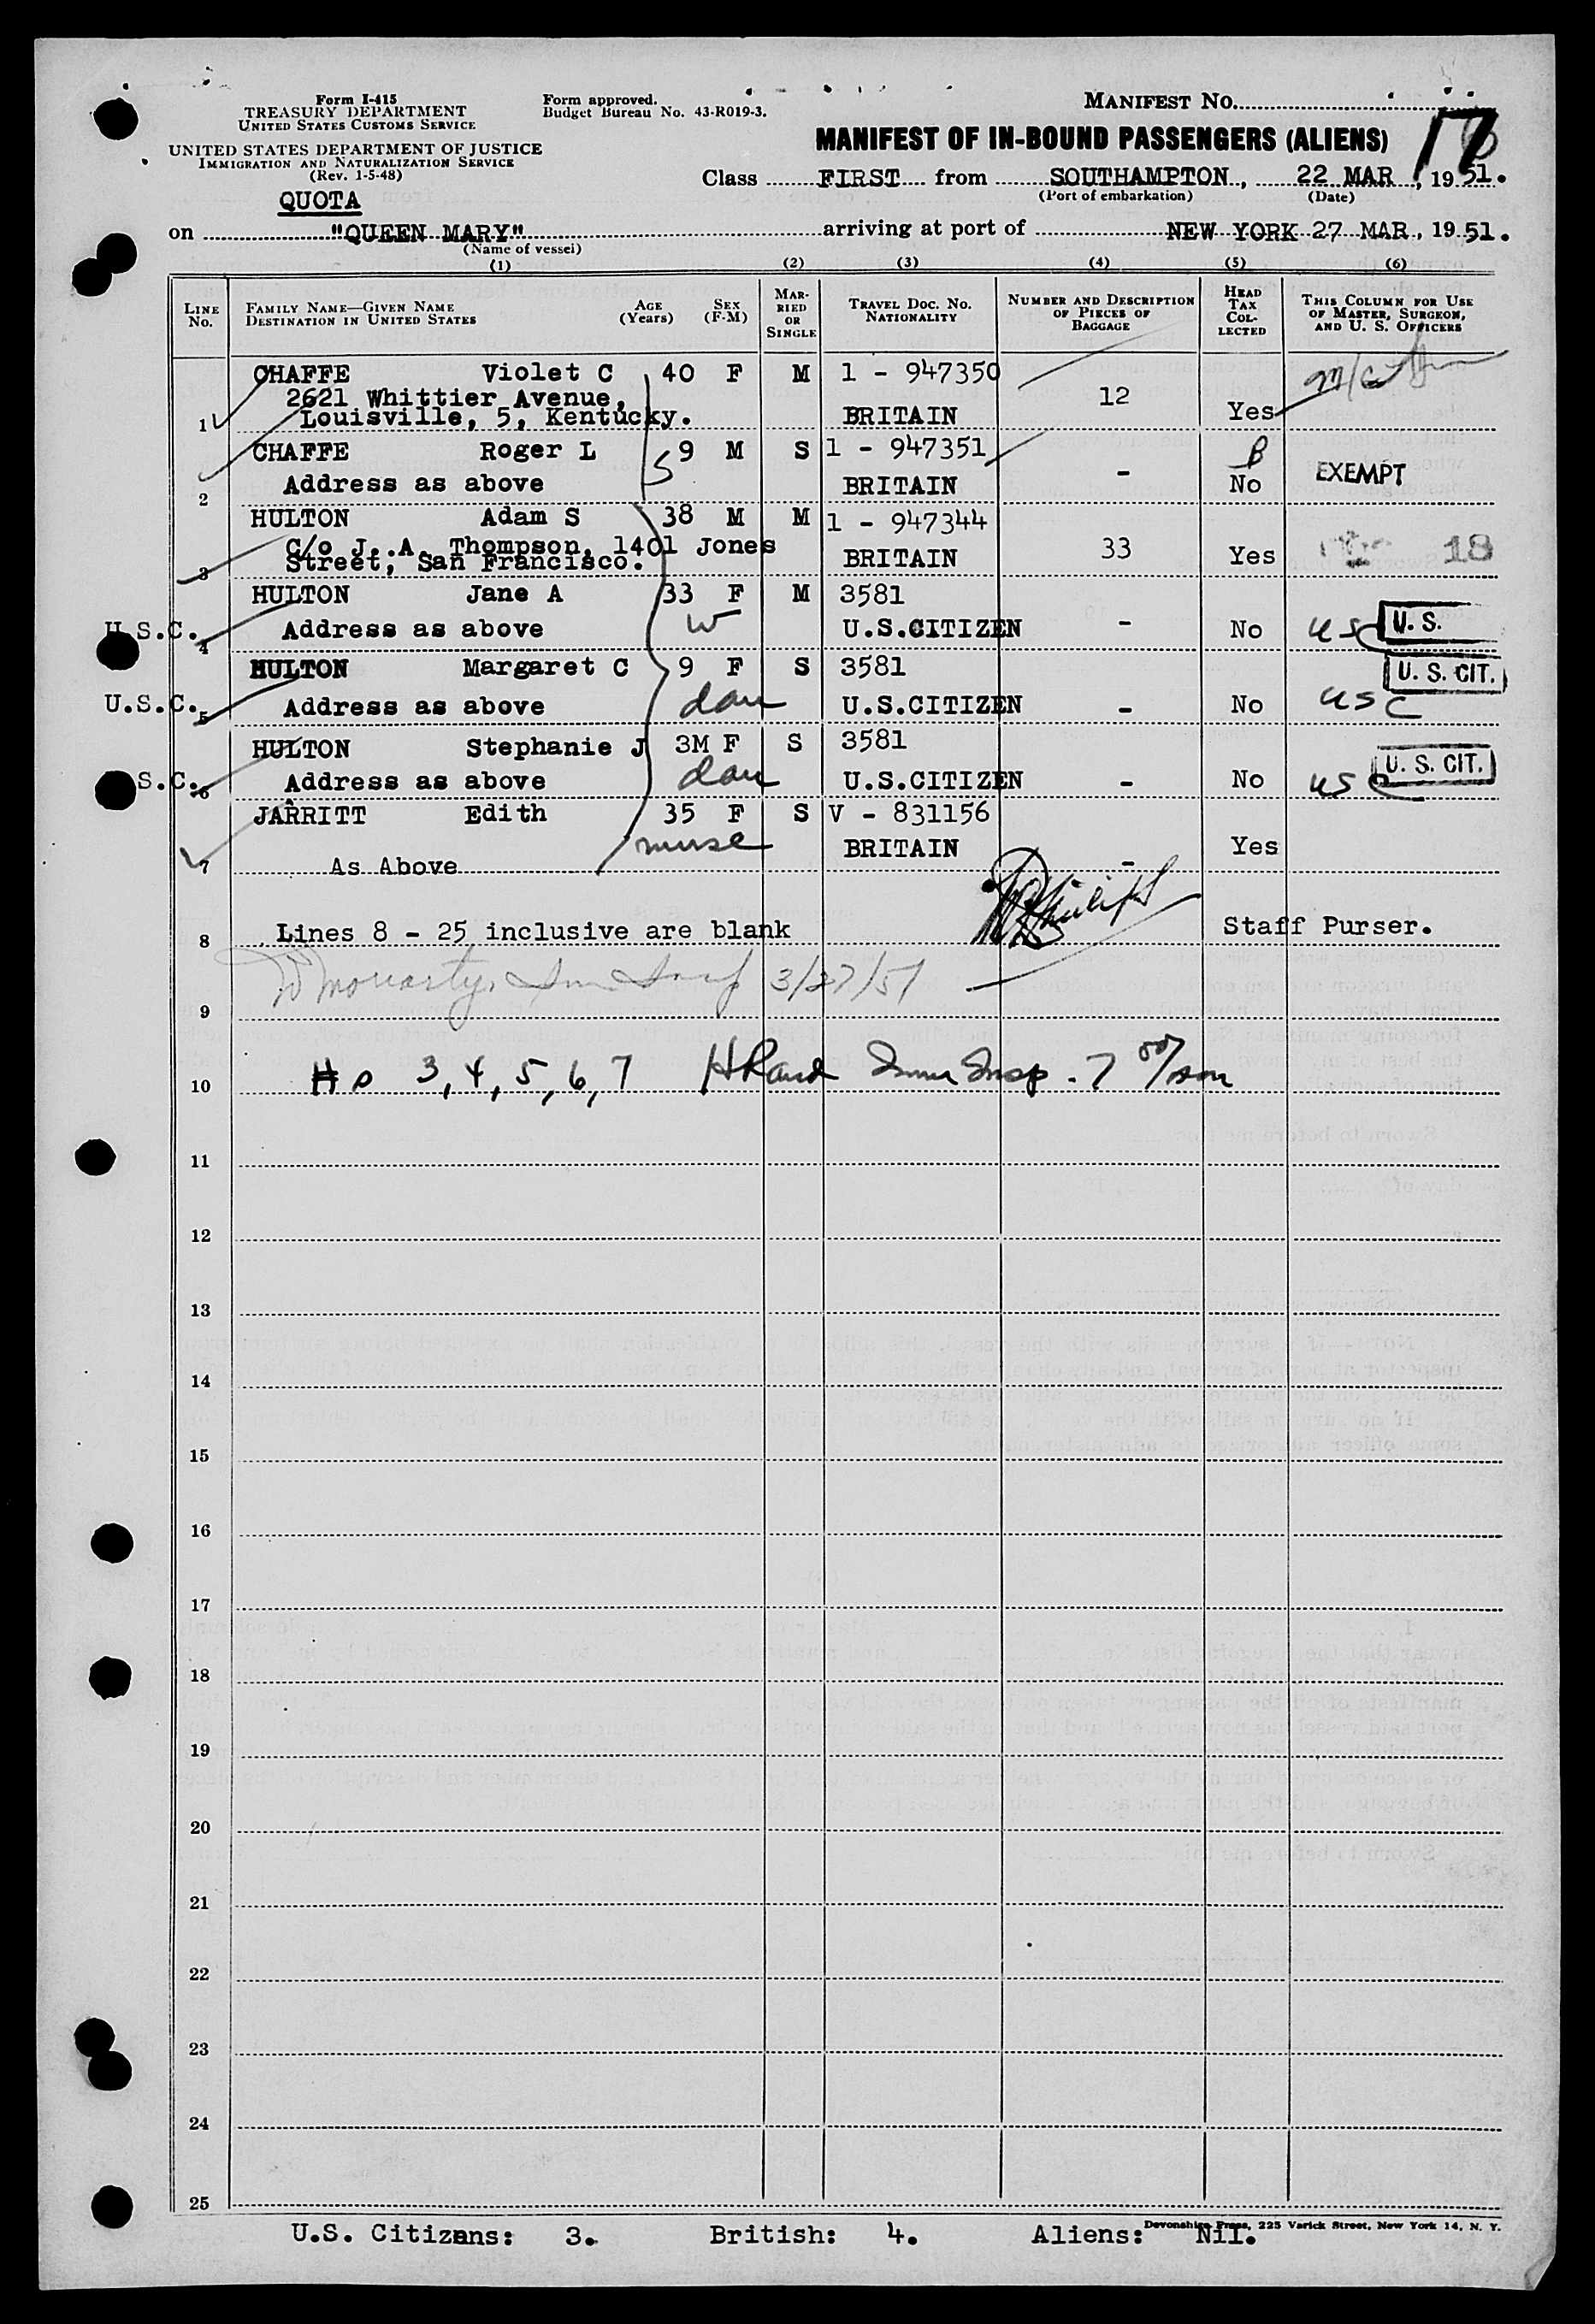 Form I-415
TREASURY DEPARTMENT
UNITED STATES CUSTOMS SERVICE
UNITED STATES DEPARTMENT OF JUSTICE
IMMIGRATION AND NATURALIZATION SERVICE
(Rev. 1-5-48)
Form approved.
Budget Bureau No. 43-R019-3.
MANIFEST NO.
17
MANIFEST OF IN-BOUND PASSENGERS (ALIENS)
Class FIRST from SOUTHAMPTON, 22 MAR, 1951.
(Port of embarkation) (Date)
QUOTA
on "QUEEN MARY" arriving at port of NEW YORK 27 MAR, 1951.
(Name of vessel)
(1) (2) (3) (4) (5) (6)
LINE No.
FAMILY NAME—GIVEN NAME
DESTINATION IN UNITED STATES
AGE (Years)
SEX (F-M)
MARRIED OR SINGLE
TRAVEL DOC. NO. NATIONALITY
NUMBER AND DESCRIPTION OF PIECES OF BAGGAGE
HEAD TAX COLLECTED
THIS COLUMN FOR USE OF MASTER, SURGEON, AND U. S. OFFICERS
CHAFFE Violet C 40 F M 1 - 947350
2621 Whittier Avenue, 12
1 Louisville, 5, Kentucky. BRITAIN Yes
CHAFFE Roger L 9 M S 1 - 947351
S
2 Address as above BRITAIN - No EXEMPT
HULTON Adam S 38 M M 1 - 947344
C/o J. A. Thompson, 1401 Jones
3 Street, San Francisco. BRITAIN 33 Yes 18
HULTON Jane A 33 F M 3581
U.S.C. 4 Address as above W U.S.CITIZEN - No USC U. S.
HULTON Margaret C 9 F S 3581 U. S. CIT.
U.S.C. 5 Address as above dau U.S.CITIZEN - No USC
HULTON Stephanie J 3M F S 3581 U. S. CIT.
S.C. 6 Address as above dau U.S.CITIZEN - No USC
JARRITT Edith 35 F S V - 831156
nurse BRITAIN - Yes
7 As Above
8 Lines 8 - 25 inclusive are blank Staff Purser.
9 Moriarty, 3/27/51
10 3, 4, 5, 6, 7 Insp. 7
11
12
13
14
15
16
17
18
19
20
21
22
23
24
25
Devonshire Press, 225 Varick Street, New York 14, N. Y.
U.S. Citizens: 3. British: 4. Aliens: Nil.